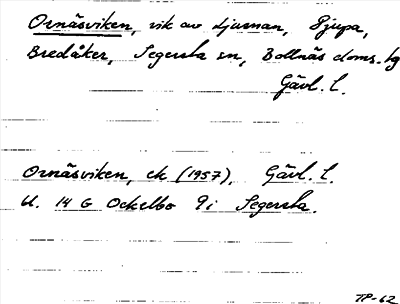 Ornäsviken, vik av Ljusnan, Djupa,
Bredåker, Segersta sn, Bollnäs doms. hg
Gävl. l.
Ornäsviken, ek (1957), Gävl. l.
U. 14 G Ockelbo 9i Segersta.
TP-62